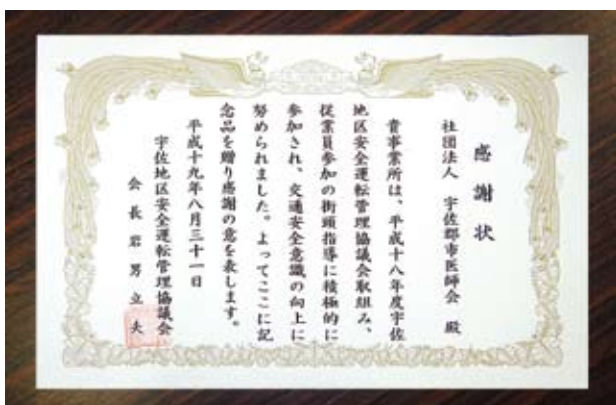 感謝状
社団法人 宇佐郡市医師会 殿
貴事業所は、平成十八年度宇佐
地区安全運転管理協議会取組み、
従業員参加の街頭指導に積極的に
参加され、交通安全意識の向上に
努められました。よってここに記
念品を贈り感謝の意を表します。
平成十九年八月三十一日
宇佐地区安全運転管理協議会
会長 岩男立夫